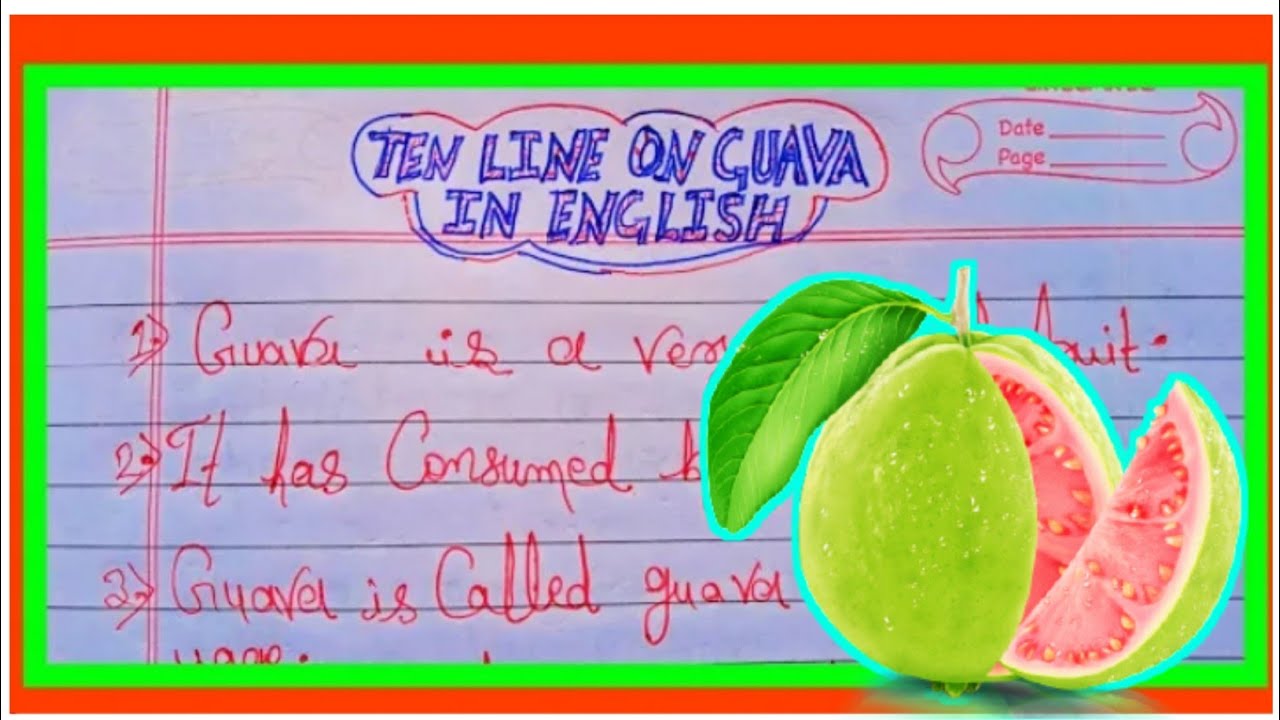 TEN LINE ON GUAVA
IN ENGLISH
Date
Page
1) Guava is a fruit.
2) It has Consumed
3) Guava is Called guava